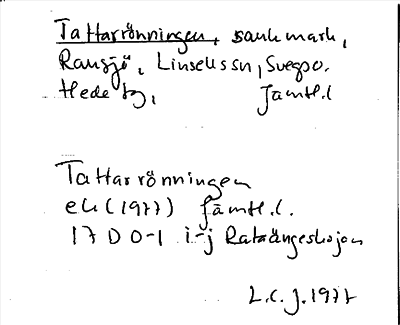 Tattarrönningen, sank mark,
Ransjö, Linsells sn, Svegs o.
Hede tg, Jämtl. l
Tattarrönningen
ek (1977) Jämtl. l.
17 D 0-1 i-j
L.C.J. 1977